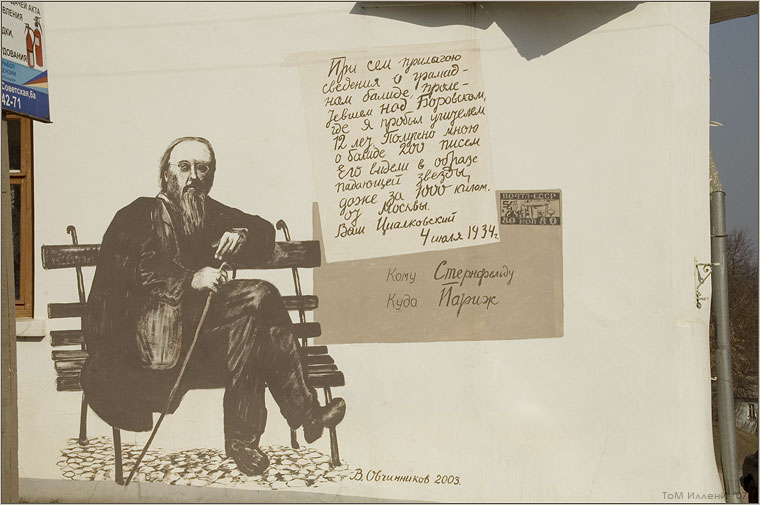 ДАЧЕЙ АКТА
ВЛЕНИЯ
ДКИ,
УДОВАНИЯ
РАБОТ
Советская,6а
42-71
При сем прилагаю
сведения о громад-
ном балиде, проле-
тевшем над Боровском,
где я пробыл учителем
12 лет. Получено мною
о балиде 200 писем
Его видели в образе
падающей звезды,
даже за 1000 килом.
от Москвы.
Ваш Циалковский
4 июля 1934г.
ПОЧТА-СССР
80 КОП 80
Кому Стернфельду
Куда Париж
В. Овчинников 2003.
ТоМ Иллени